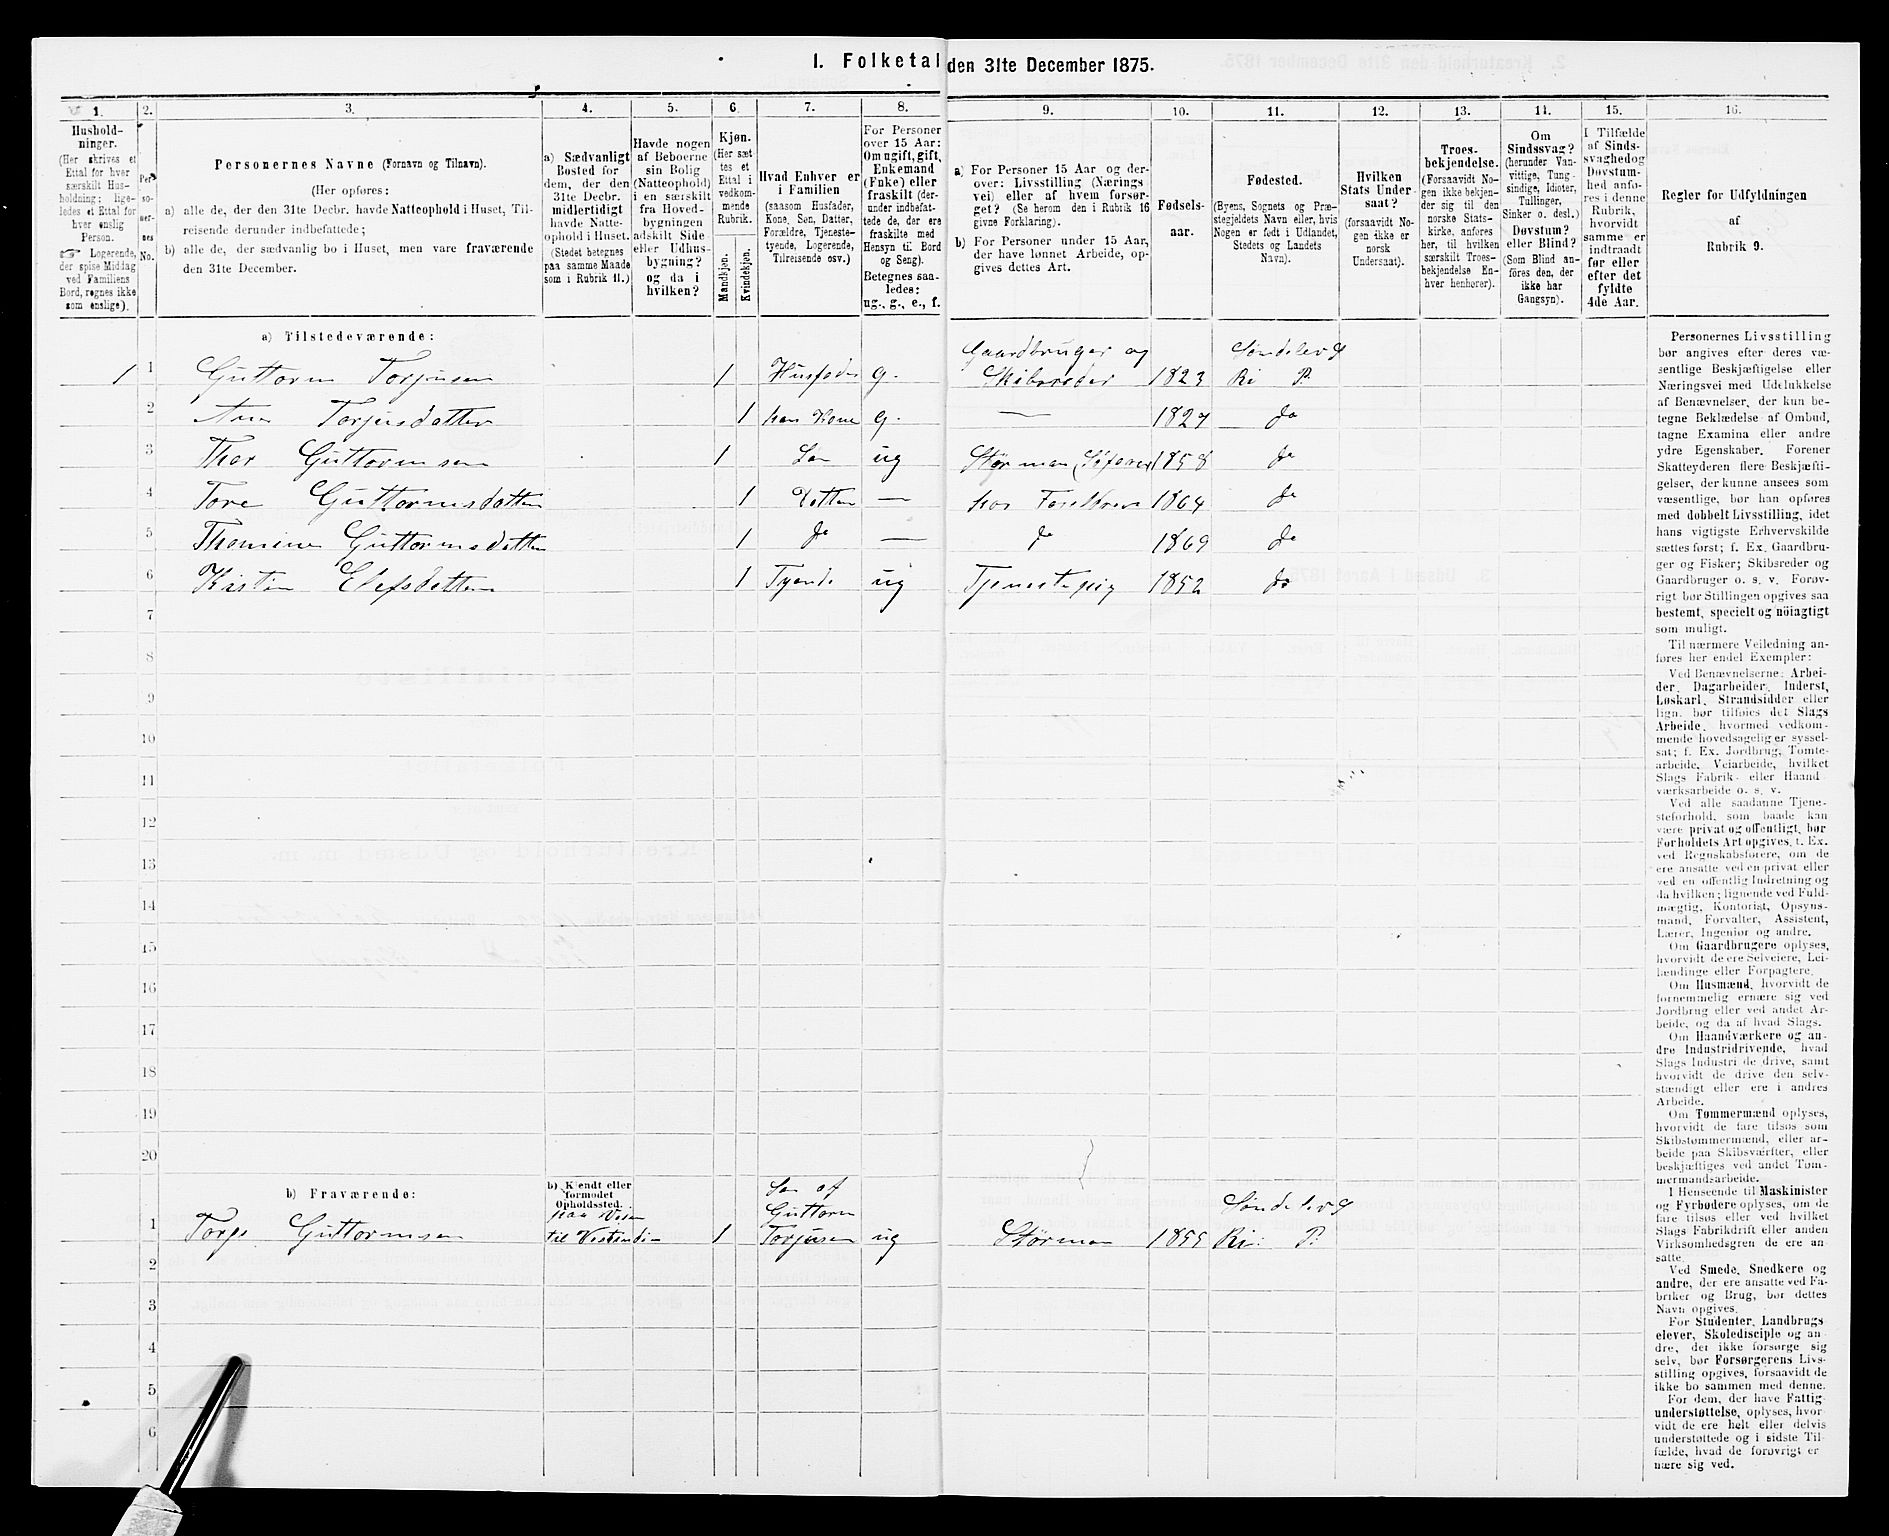 1. Folketal den 31te December 1875.
1. 2. 3. 4. 5. 6. 7. 8. 9. 10. 11. 12. 13. 14. 15. 16.
Hushold-
ninger.
(Her skrives et
Ettal for hver
særskilt Hus-
holdning; lige-
ledes et Ettal for
hver enslig
Person.
☞ Logerende,
der spise Middag
ved Familiens
Bord, regnes ikke
som enslige.)
Per-
so-
ner-
nes
No.
Personernes Navne (Fornavn og Tilnavn).
(Her opføres:
a) alle de, der den 31te Decbr. havde Natteophold i Huset, Til-
reisende derunder indbefattede;
b) alle de, der sædvanlig bo i Huset, men vare fraværende
den 31te December.
a) Sædvanligt
Bosted for
dem, der den
31te Decbr.
midlertidigt
havde Natte-
ophold i Huset.
(Stedet betegnes
paa samme Maade
som i Rubrik 11.)
Havde nogen
af Beboerne
sin Bolig
(Natteophold)
i en særskilt
fra Hoved-
bygningen
adskilt Side-
eller Udhus-
bygning?
og da i
hvilken?
Kjøn.
(Her sæt-
tes et
Ettal i
vedkom-
mende
Rubrik.
Mandkjøn.
Kvindekjøn.
Hvad Enhver er
i Familien
(saasom Husfader,
Kone, Søn, Datter,
Forældre, Tjeneste-
tyende, Logerende,
Tilreisende osv.)
For Personer
over 15 Aar:
Om ugift, gift,
Enkemand
(Enke) eller
fraskilt (der-
under indbefat-
tede de, der ere
fraskilte med
Hensyn til Bord
og Seng).
Betegnes saa-
ledes:
ug., g., e., f.
a) For Personer 15 Aar og der-
over: Livsstilling (Nærings-
vei) eller af hvem forsør-
get? (Se herom den i Rubrik 16
givne Forklaring).
b) For Personer under 15 Aar,
der have lønnet Arbeide, op-
gives dettes Art.
Fødsels-
aar.
Fødested.
(Byens, Sognets og Præ-
stegjeldets Navn eller, hvis
Nogen er født i Udlandet,
Stedets og Landets
Navn).
Hvilken
Stats Under-
saat?
(forsaavidt No-
gen ikke er
norsk
Undersaat).
Troes-
bekjendelse.
(Forsaavidt No-
gen ikke bekjen-
der sig til den
norske Stats-
kirke, anføres
her, til hvilken
særskilt Troes-
bekjendelse En-
hver henhører).
Om
Sindssvag?
(herunder Van-
vittige, Tung-
sindige, Idioter,
Tullinger,
Sinker o. desl.)
Døvstum?
eller Blind?
(Som Blind an-
føres den, der
ikke har
Gangsyn).
I Tilfælde
af Sinds-
svaghed og
Døvstum-
hed anfø-
res i denne
Rubrik,
hvorvidt
samme er
indtraadt
før eller
efter det
fyldte
4de Aar.
Regler for Udfyldningen
af
Rubrik 9.
a) Tilstedeværende:
1 1 Guttorm Torjusen 1 Husfader g. Gaardbruger og Skibsreder 1823 Søndelevs Ri P.
2 Ane Torjusdatter 1 hans Kone g. — 1827 do
3 Thor Guttormsen 1 Søn ug Störman (Søfarer) 1858 do
4 Tore Guttormsdatter 1 Datter — hos Foreldrene 1864 do
5 Thomine Guttormsdatter 1 do — do 1869 do
6 Kistin Elefsdatter 1 Tyende ug Tjenestepig 1852 do
7
8
9
10
11
12
13
14
15
16
17
18
19
20
b) Fraværende:
b) Kjendt eller
formodet
Opholdssted.
1 Torge Guttormsen til Vestindi— 1 Søn af Guttorm Torjusen ug Störman 1855 Søndelevs Ri: P:
2
3
4
5
6
Personernes Livsstilling
bør angives efter deres væ-
sentlige Beskjæftigelse eller
Næringsvei med Udelukkelse
af Benævnelser, der kun be-
tegne Beklædelse af Ombud,
tagne Examina eller andre
ydre Egenskaber. Forener
Skatteyderen flere Beskjæfti-
gelser, der kunne ansees som
væsentlige, bør han opføres
med dobbelt Livsstilling, idet
hans vigtigste Erhvervskilde
sættes først; f. Ex. Gaardbru-
ger og Fisker; Skibsreder og
Gaardbruger o. s. v. Forøv-
rigt bør Stillingen opgives saa
bestemt, specielt og nöiagtigt
som muligt.
Til nærmere Veiledning an-
føres her endel Exempler:
Ved Benævnelserne: Arbei-
der, Dagarbeider, Inderst,
Løskarl, Strandsidder eller
lign. bør tilføies det Slags
Arbeide, hvormed vedkom-
mende hovedsagelig er syssel-
sat; f. Ex. Jordbrug, Tomte-
arbeide, Veiarbeide, hvilket
Slags Fabrik- eller Haand-
værksarbeide o. s. v.
Ved alle saadanne Tjene-
steforhold, som baade kan
være privat og offentligt, bør
Forholdets Art opgives, t. Ex.
ved Regnskabsførere, om de
ere ansatte ved en privat eller
ved en offentlig Indretning og
da hvilken; lignende ved Fuld-
mægtig, Kontorist, Opsyns-
mand, Forvalter, Assistent,
Lærer, Ingeniør og andre.
Om Gaardbrugere oplyses,
hvorvidt de ere Selveiere, Lei-
lændinge eller Forpagtere.
Om Husmænd, hvorvidt de
fornemmelig ernære sig ved
Jordbrug eller ved andet Ar-
beide, og da af hvad Slags.
Om Haandværkere og an-
dre Industridrivende, hvad
Slags Industri de drive, samt
hvorvidt de drive den selv-
stændigt eller ere i andres
Arbeide.
Om Tømmermænd oplyses,
hvorvidt de fare tilsøs som
Skibstømmermænd, eller ar-
beide paa Skibsværfter, eller
beskjæftiges ved andet Tøm-
mermandsarbeide.
I Henseende til Maskinister
og Fyrbødere oplyses, om de
fare tilsøs eller ved hvilket
Slags Fabrikdrift eller anden
Virksomhedsgren de ere an-
satte.
Ved Smede, Snedkere og
andre, der ere ansatte ved Fa-
briker og Brug, bør dettes
Navn opgives.
For Studenter, Landbrugs-
elever, Skoledisciple og an-
dre, der ikke forsørge sig
selv, bør Forsørgerens Livs-
stilling opgives, forsaavidt de
ikke bo sammen med denne.
For dem, der have Fattig-
understøttelse, oplyses, hvor-
vidt de ere helt eller delvis
understøttede og i sidste Til-
fælde, hvad de forøvrigt er-
nære sig ved.